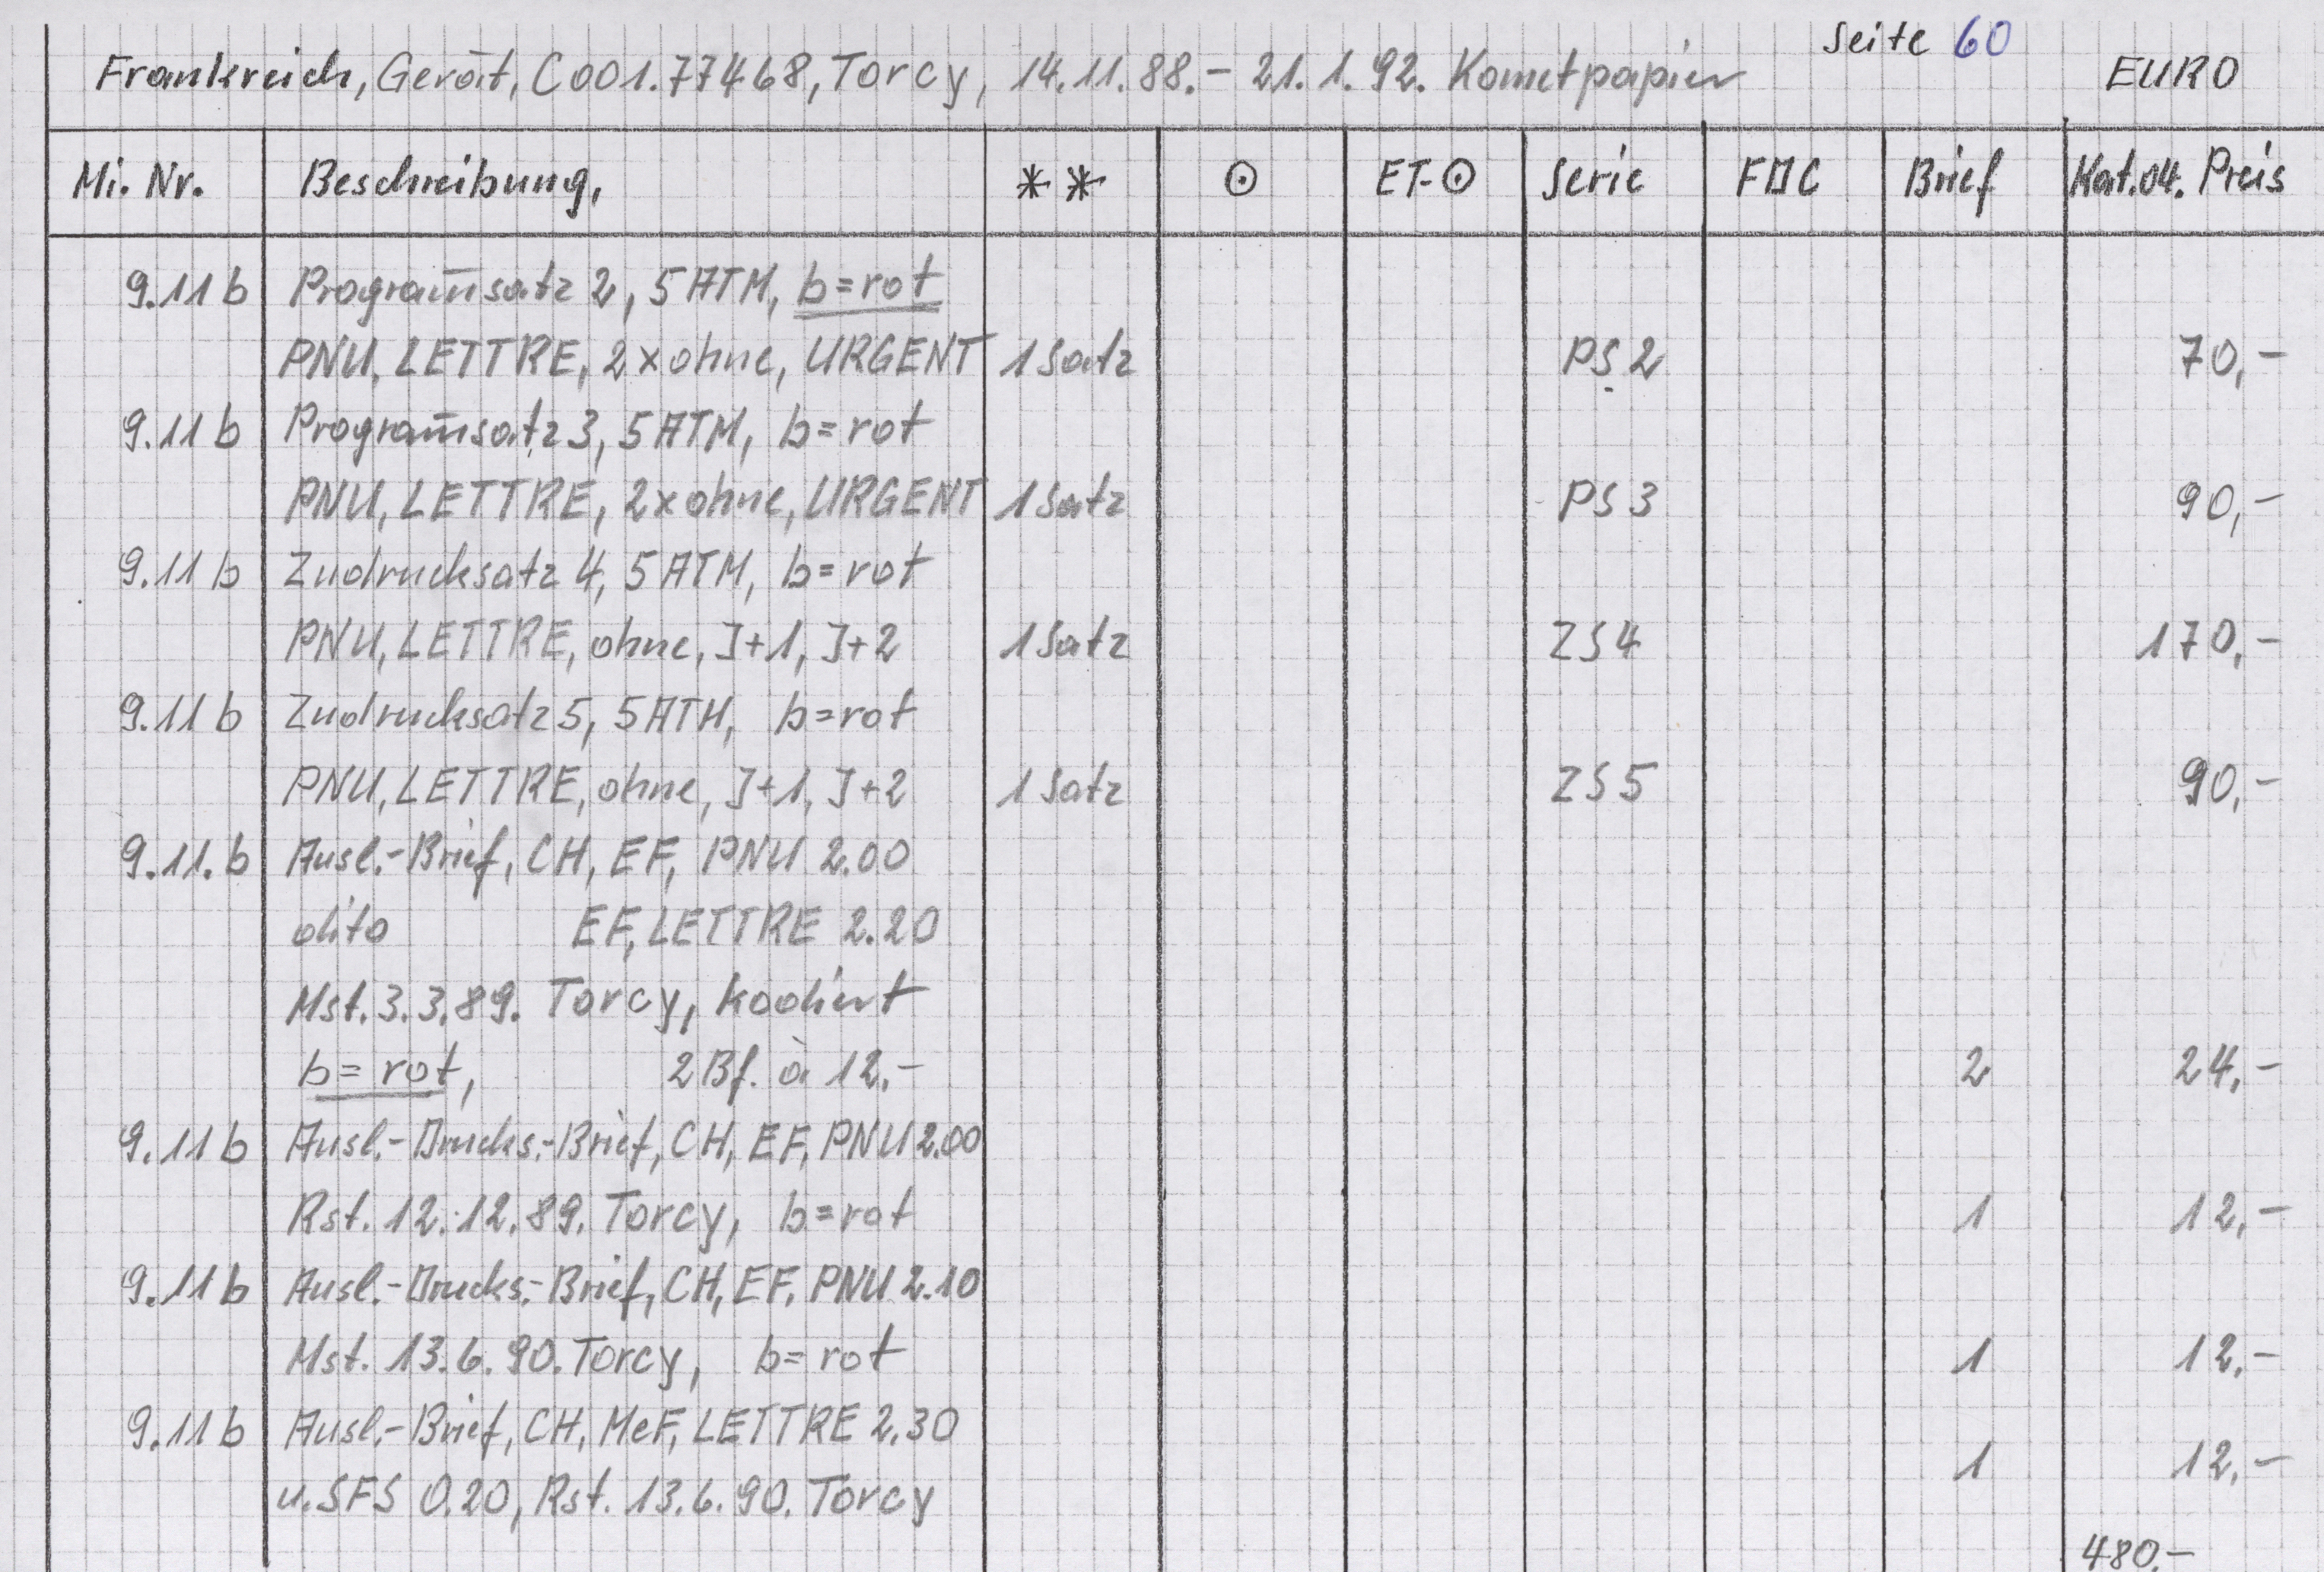 Seite 60
Frankreich, Gerät, C001.77468, Torcy, 14.11.88.- 21.1.92. Kometpapier EURO
Mi. Nr. Beschreibung, ** ⊙ ET-⊙ Serie FDC Brief Kat.04. Preis
9.11 b Programm̄satz 2, 5 ATM, b=rot
PNU, LETTRE, 2x ohne, URGENT 1 Satz PS 2 70,-
9.11 b Programm̄satz 3, 5 ATM, b=rot
PNU, LETTRE, 2x ohne, URGENT 1 Satz PS 3 90,-
9.11 b Zudrucksatz 4, 5 ATM, b=rot
PNU, LETTRE, ohne, J+1, J+2 1 Satz ZS 4 170,-
9.11 b Zudrucksatz 5, 5 ATM, b=rot
PNU, LETTRE, ohne, J+1, J+2 1 Satz ZS 5 90,-
9.11. b Ausl.-Brief, CH, EF, PNU 2.00
dito EF, LETTRE 2.20
Mst. 3.3.89. Torcy, kodiert
b= rot, 2 Bf. à 12,- 2 24,-
9.11 b Ausl.-Drucks.-Brief, CH, EF, PNU 2.00
Rst. 12.12.89. Torcy, b=rot 1 12,-
9.11 b Ausl.-Drucks.-Brief, CH, EF, PNU 2.10
Mst. 13.6.90. Torcy, b=rot 1 12,-
9.11 b Ausl.-Brief, CH, MeF, LETTRE 2.30
u. SFS 0.20, Rst. 13.6.90. Torcy 1 12,-
480,-